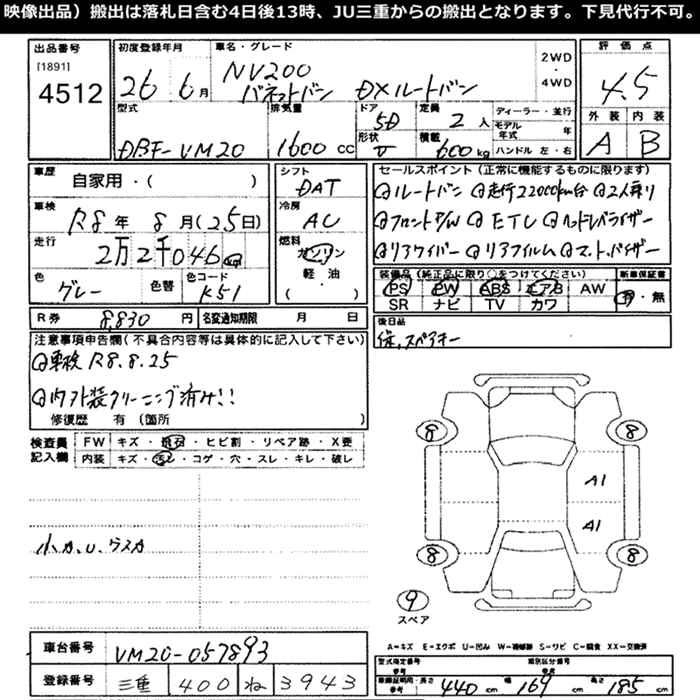 映像出品）搬出は落札日含む4日後13時、JU三重からの搬出となります。下見代行不可。
出品番号 [1891] 4512
初度登録年月 26年 6月
車名・グレード NV200 バネットバン DXルートバン
2WD・4WD
評価点 4.5
外装 A 内装 B
型式 DBF-VM20
排気量 1600cc
ドア形状 5D
定員 2人
積載 600kg
ディーラー・並行
モデル年式 年
ハンドル 左・右
車歴 自家用・( )
車検 R8年 8月(25日)
走行 2万2千046km
色 グレー 色替 色コード K51
シフト DAT
冷房 AC
燃料 ガソリン 軽油 ( ・ )
セールスポイント（正常に機能するものに限ります）
ルートバン 走行22000km台 2人乗り
フロントP/W ETC ヘッドレベライザー
リアワイパー リアフイルム マット、バイザー
装備品（純正品に限り○をつけてください） 新車保証書
PS PW ABS エアB AW 有・無
SR ナビ TV カワ
R券 8,830円 名変通知期限 月 日
後日品
保、スペアキー
注意事項申告欄（不具合内容等は具体的に記入して下さい）
車検 R8.8.25
内外装クリーニング済み!!
修復歴 有（箇所
検査員記入欄
FW キズ・飛石・ヒビ割・リペア跡・X要
内装 キズ・汚レ・コゲ・穴・スレ・キレ・破レ
小カ、U、ウスカ
8 8
A1
A1
8 8
9
スペア
A=キズ E=エクボ U=凹み W=補修跡 S=サビ C=腐食 XX=交換済
車台番号 VM20-057893
登録番号 三重 400 ね 3943
型式指定番号 参考 類別区分番号
車庫証明用・長さ 参考 440cm 幅 169cm 高さ 185cm